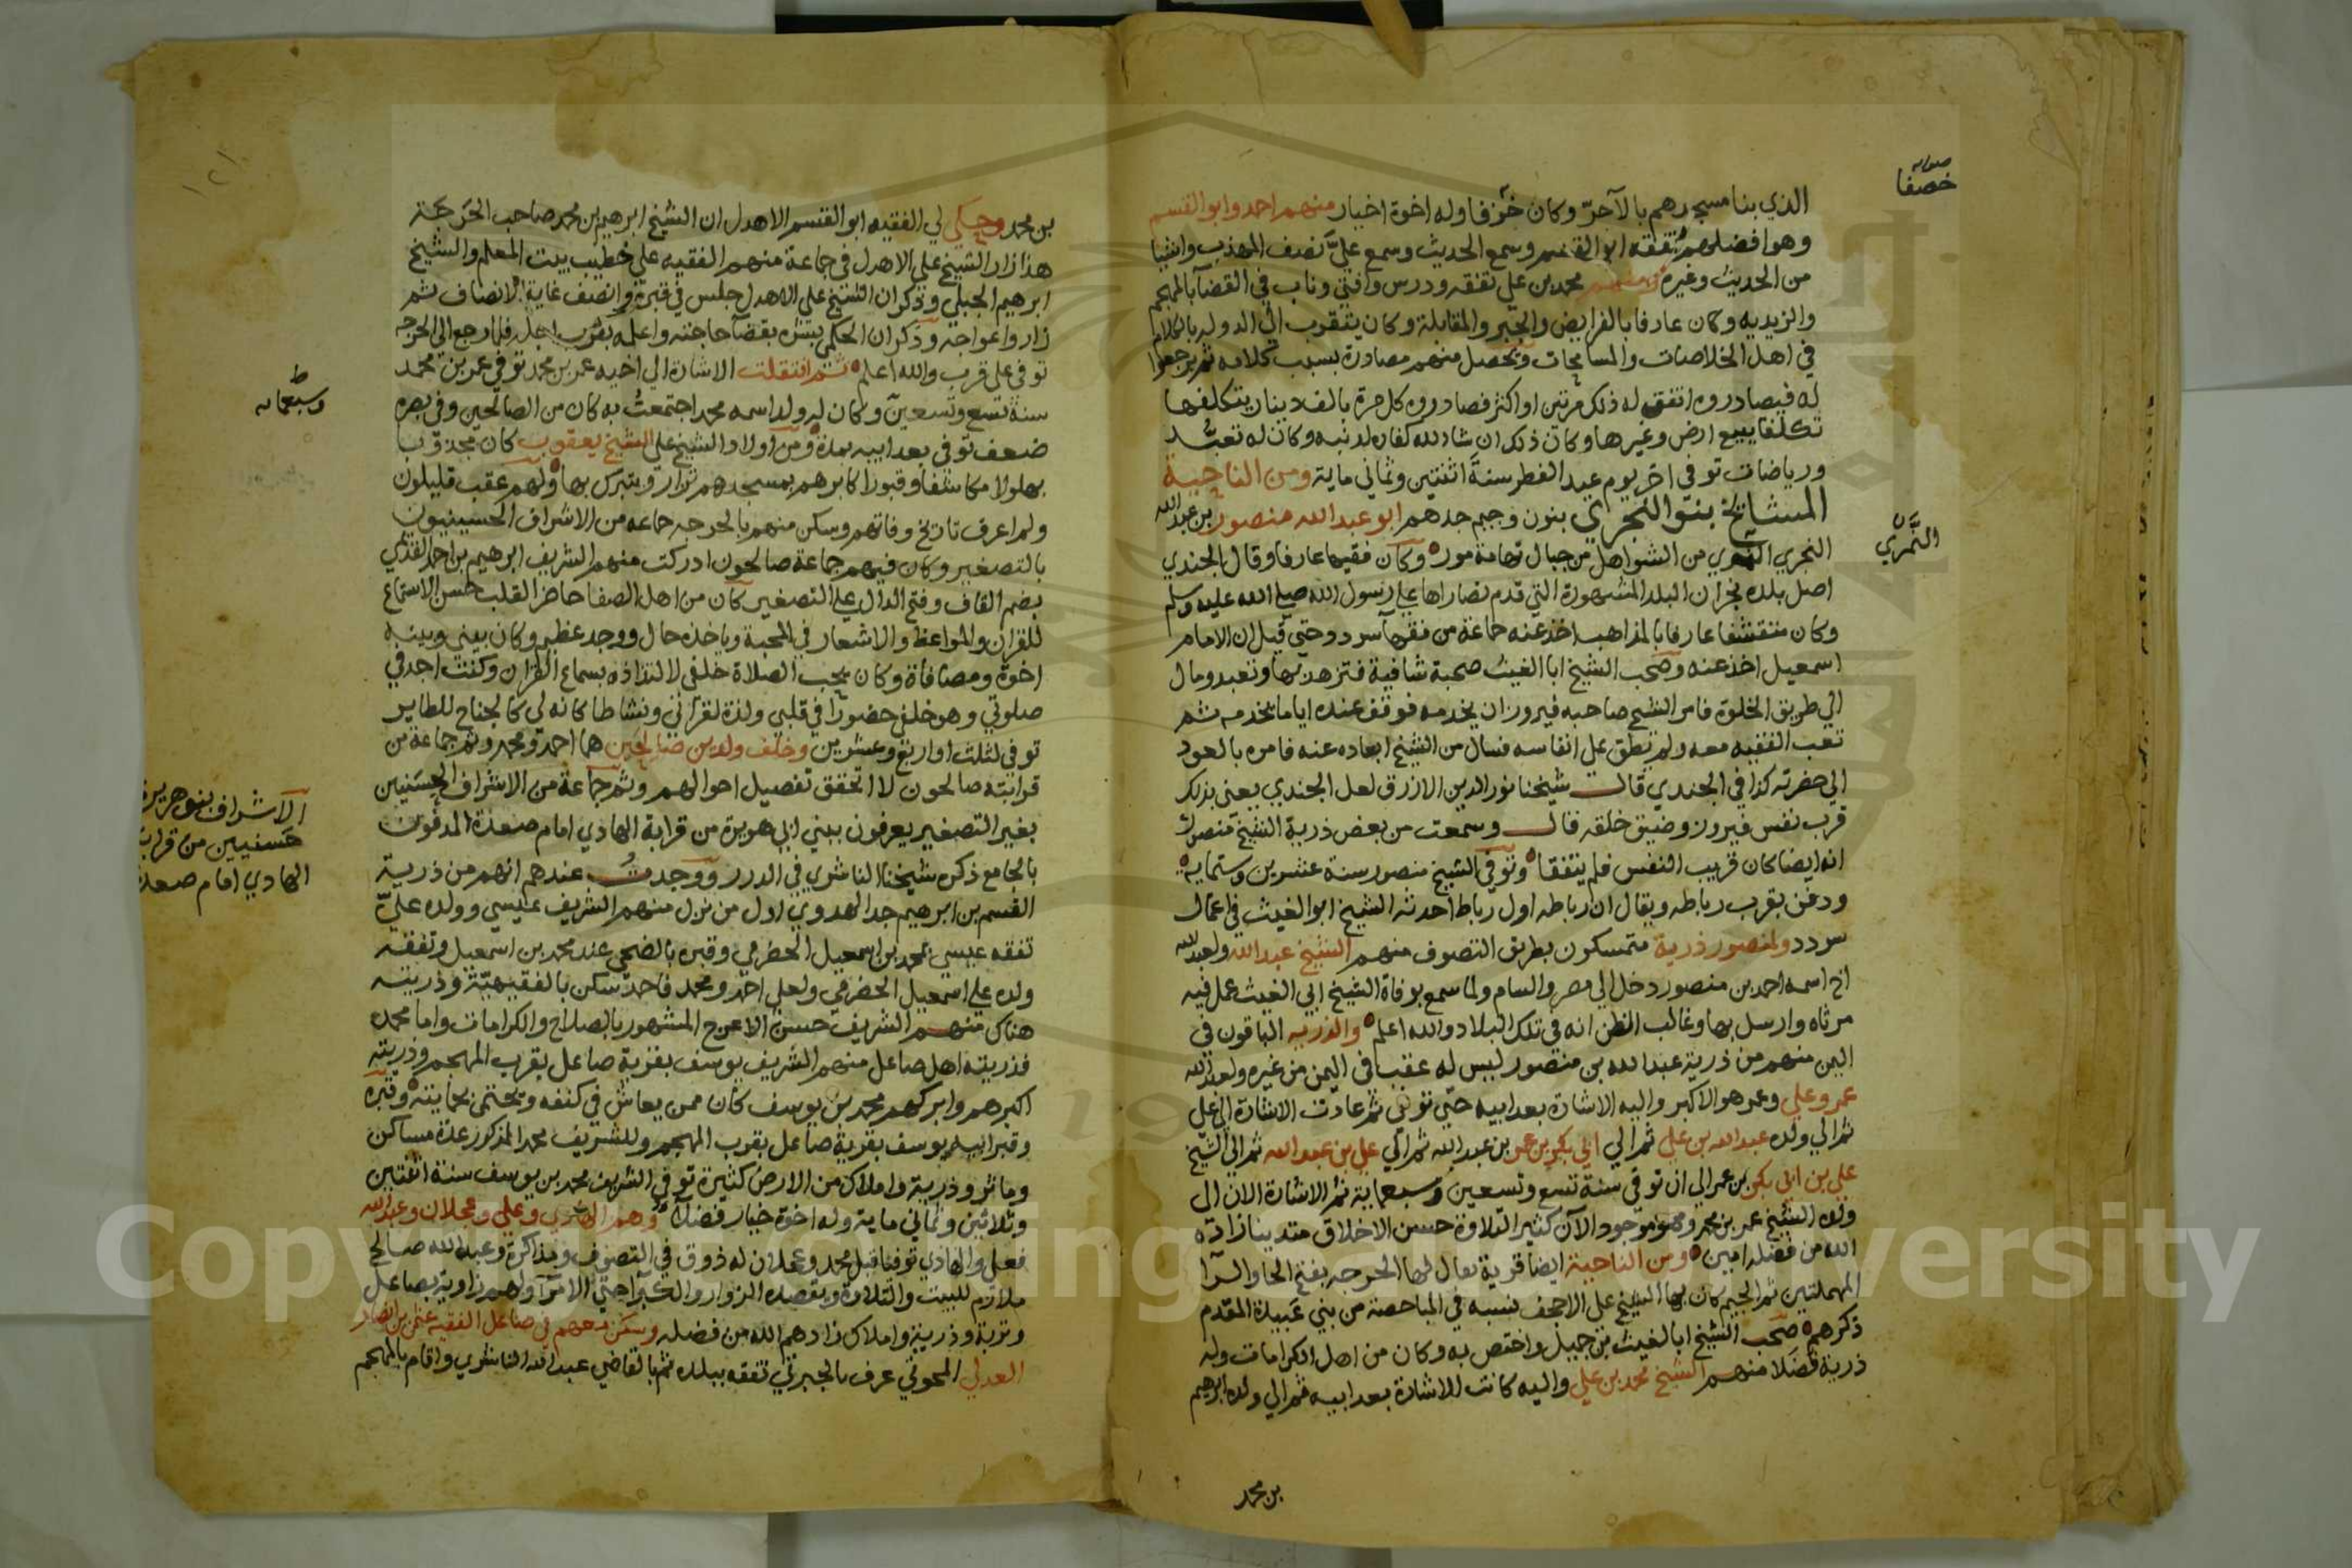 صوابه
خصفا
الذي بنا مسجدهم بالآجرّ وكان خزفا وله اخوة اخيار منهم احمد وابو القسم
وهو افضلهم تفقه ابو القسم وسمع الحديث وسمع عليّ نصف المهذب واشيا
من الحديث وغيره ومنهم محمد بن علي تفقه ودرس وافتي وناب في القضآ بالمهجم
والزيديه وكان عارفا بالفرايض والجبر والمقابلة وكان يتقرب الي الدوله بالكلام
في اهل الخلاصات والمسامحات وتحصل منهم مصادرة بسبب كلامه ثم يرجعوا
له فيصادروه اتفق له ذلك مرتين او اكثر فصادروه كل مرة بالف دينار يتكلفها
تكلفا يبيع ارض وغيرها وكان ذلك ان شاء الله كفارة لذنبه وكان له تعبد
ورياضات توفي اخر يوم عيد الفطر سنة اثنتين وثماني ماية ومن الناحية
المشايخ بنو النجراي بنون وجيم جدهم ابو عبد الله منصور بن عبد الله
النجري من الشواهل من جبال تهامة مور وكان فقيها عارفا وقال الجندي
النمري
اصل بلده نجران البلد المشهورة التي قدم نصاراها علي رسول الله صلي الله عليه وسلم
وكان متقشفا عارفا بالمذاهب اخذ عنه جماعة من فقهآ سردد حتي قيل ان الامام
اسمعيل اخذ عنه وصحب الشيخ ابا الغيث صحبة شافية فتزهد بها وتعبد ومال
الي طريق الخلوة فامر الشيخ صاحبه فيروز ان يخدمه فوقف عنده اياما يخدمه ثم
تعب الفقيه معه ولم يطق علي انفاسه فسال من الشيخ ابعاده عنه فامره بالعود
الي حضرته كذا في الجندي قال شيخنا نور الدين الازرق لعل الجندي يعني بذلك
قرب نفس فيروز وضيق خلقه قال وسمعت من بعض ذرية الشيخ منصور
انه ايضا كان قريب النفس فلم يتفقا وتوفي الشيخ منصور سنة عشرين وستمايه
ودفن بقرب رباطه ويقال ان رباطه اول رباط احدثه الشيخ ابو الغيث في اعمال
سردد ولمنصور ذرية متمسكون بطريق التصوف منهم الشيخ عبد الله ولعبد الله
اخ اسمه احمد بن منصور دخل الي مصر والشام ولما سمع بوفاة الشيخ ابي الغيث عمل فيه
مرثاه وارسل بها وغالب الظن انه في تلك البلاد والله اعلم والذريه الباقون في
اليمن منهم من ذرية عبد الله بن منصور ليس له عقب في اليمن من غيره ولعبد الله
عمر وعلي وعمر هو الاكبر واليه الاشارة بعد ابيه حتي توفي ثم عادت الاشارة الي علي
ثم الي ولده عبد الله بن علي ثم الي ابي بكر بن عمر بن عبد الله ثم الي علي بن عبد الله ثم الي الشيخ
علي بن ابي بكر بن عمر الي ان توفي سنة تسع وتسعين وسبعماية ثم الاشارة الان الي
ولده الشيخ عمر بن محمد وهو موجود الآن كثير التلاوة حسن الاخلاق متدينا زاده
الله من فضله امين ومن الناحية ايضا قرية يقال لها الحرجه بفتح الحا والرآ
المهملتين ثم الجيم كان بها الشيخ علي الاجحف نسبه في المباحصة من بني عبيدة المقدم
ذكرهم صحب الشيخ ابا الغيث بن جميل واختص به وكان من اهل الكرامات وله
ذرية فضلا منهم الشيخ محمد بن علي واليه كانت الاشارة بعد ابيه ثم الي ولده ابرهيم
بن محمد
١٢١
بن محمد وحكي لي الفقيه ابو القسم الاهدل ان الشيخ ابرهيم بن محمد صاحب الحرجة
هذا زار الشيخ علي الاهدل في جماعة منهم الفقيه علي خطيب بيت المعلم والشيخ
ابرهيم الجبلي وذكر ان الشيخ علي الاهدل جلس في قبره وانصف غاية الانصاف ثم
زاروا عواجه وذكر ان الحكمي بشره بقضآ حاجته واعلمه بقرب اجله فلما رجع الي الحرجه
توفي علي قرب والله اعلم ثم انتقلت الاشارة الي اخيه عمر بن محمد توفي عمر بن محمد
سنة تسع وتسعين وكان له ولد اسمه محمد اجتمعتُ به كان من الصالحين وفي بصره
وسبعمايه
ضعف توفي بعد ابيه بمدة ومن اولاد الشيخ علي الشيخ يعقوب كان مجذوبا
بهلولا مكاشفا وقبور اكابرهم بمسجدهم تزار ويتبرك بها ولهم عقب قليلون
ولم اعرف تاريخ وفاتهم وسكن منهم بالحرجه جماعه من الاشراف الحسينيون
بالتصغير وكان فيهم جماعة صالحون ادركت منهم الشريف ابرهيم بن احمد القديمي
بضم القاف وفتح الدال علي التصغير كان من اهل الصفا حاضر القلب حسن الاستماع
للقران والمواعظ والاشعار في المحبة وياخذه حال ووجد عظيم وكان بيني وبينه
اخوة ومصافاة وكان يحب الصلاة خلفي لالتذاذه بسماع القران وكنت اجد في
صلوتي وهو خلفي حضورا في قلبي ولذة لقرآني ونشاطا كانه لي كالجناح للطاير
توفي لثلث او اربع وعشرين وخلف ولدين صالحين هما احمد ومحمد وثم جماعة من
قرابته صالحون لا اتحقق تفصيل احوالهم وثم جماعة من الاشراف الحسنيين
بغير التصغير يعرفون ببني ابي هويرة من قرابة الهادي امام صعدة المدفون
الاشراف بنو هريرة
حسنيين من قرابة
الهادي امام صعدة
بالجامع ذكره شيخنا الناشري في الدرر ووجدت عندهم انهم من ذرية
القسم بن ابرهيم جد الهدوي اول من نزل منهم الشريف عيسي وولده عليّ
تفقه عيسي بمحمد بن اسمعيل الحضرمي وقبره بالضحي عند محمد بن اسمعيل وتفقه
ولده علي اسمعيل الحضرمي ولعلي احمد ومحمد فاحمد سكن بالفقيهيّة وذريته
هناك منهم الشريف حسن الاعرج المشهور بالصلاح والكرامات واما محمد
فذريته اهل صاعل منهم الشريف يوسف بقرية صاعل بقرب المهجم وذريته
اكبرهم وابركهم محمد بن يوسف كان ممن يعاش في كنفه ويحتمي بحمايته وقبره
وقبر ابيه يوسف بقرية صاعل بقرب المهجم وللشريف محمد المذكور عدة مساكن
وماثر وذرية واملاك من الارض كثيرة توفي الشريف محمد بن يوسف سنة اثنتين
وثلاثين وثماني ماية وله اخوة خيار فضلآ وهم الهادي وعلي وعجلان وعبد الله
فعلي والهادي توفيا قبل محمد وعجلان له ذوق في التصوف ومذاكرة وعبد الله صالح
ملازم للبيت والتلاوة ويقصده الزوار والكبرآ حتي الامرآ ولهم زاوية بصاعل
وتربة وذرية واملاك زادهم الله من فضله وسكن معهم في صاعل الفقيه عثمن بن
العدلي المحوثي عرف بالجبرتي تفقه ببلده ثم بالقاضي عبد الله الناشري واقام بالمهجم
Copyright © King Saud University